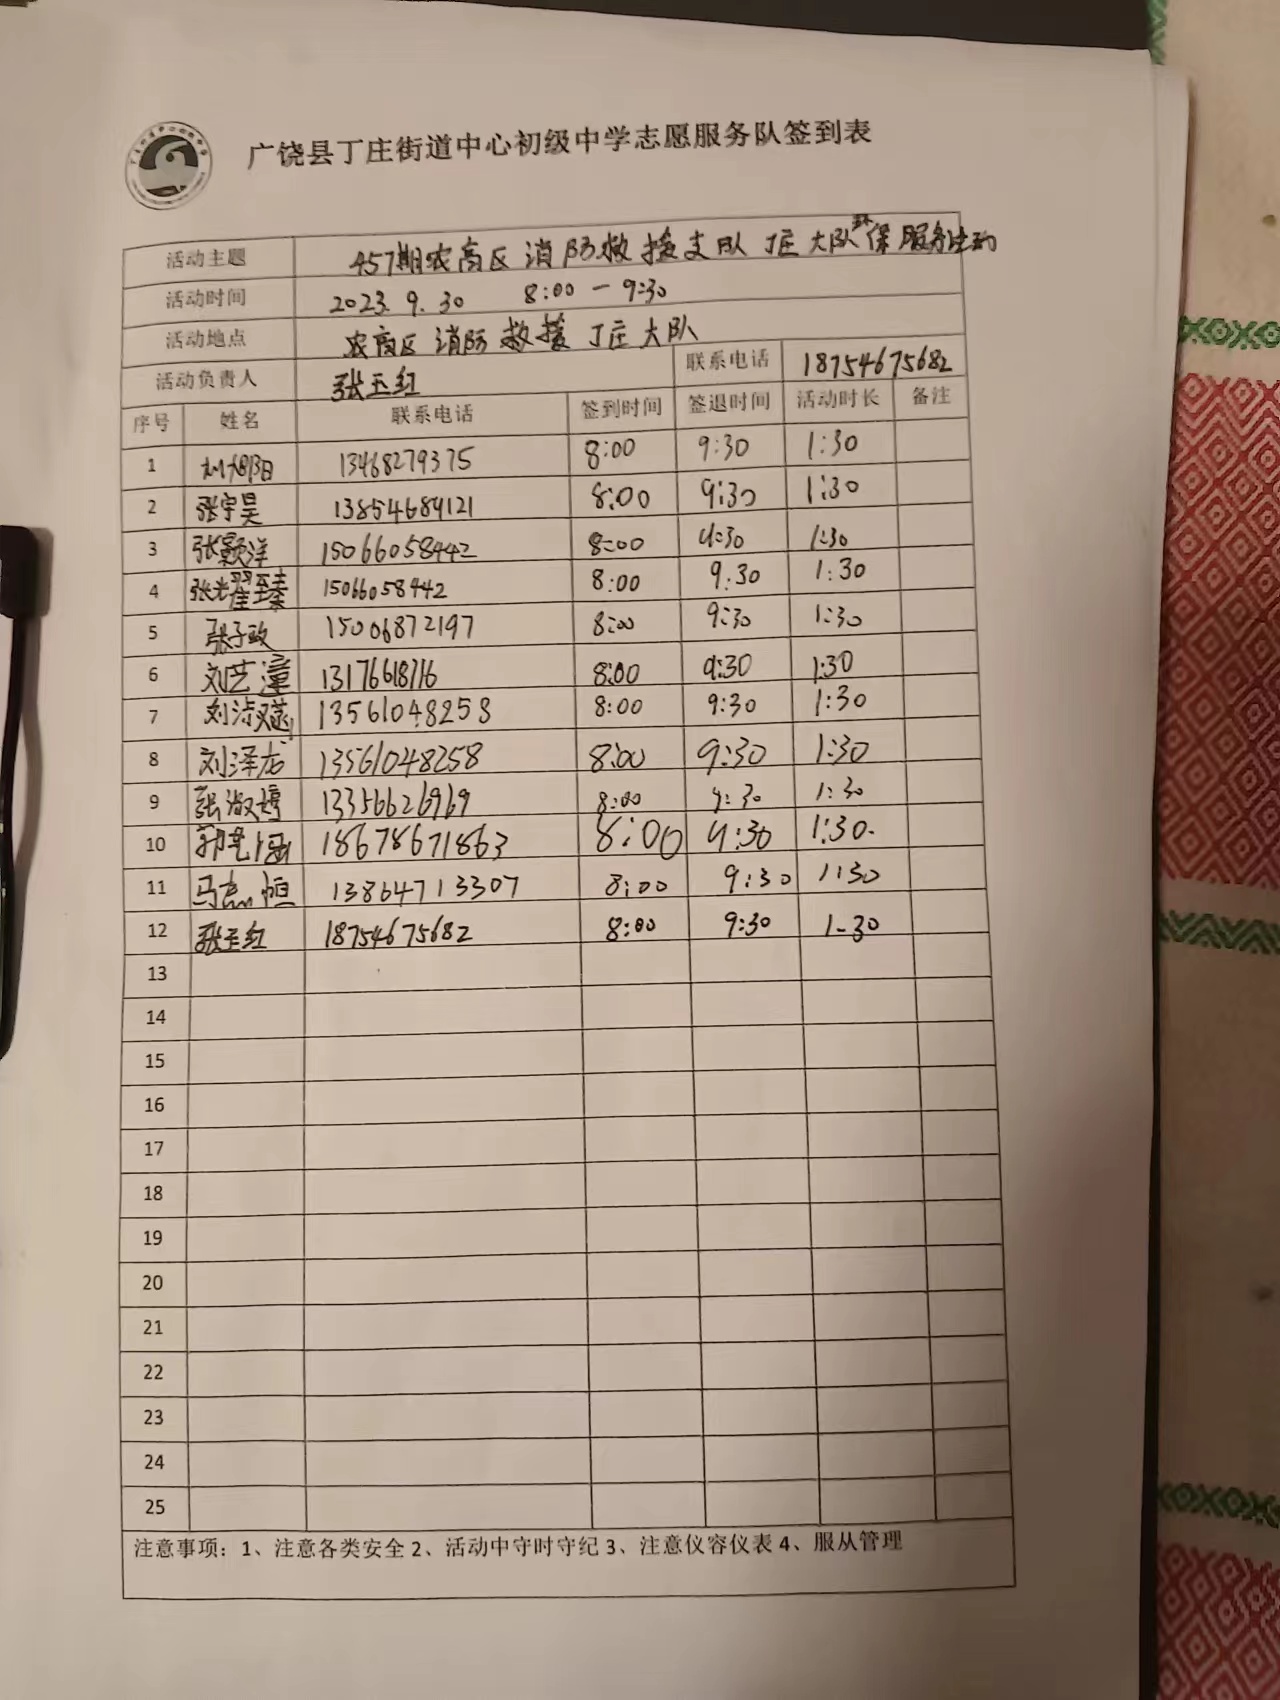 广饶县丁庄街道中心初级中学志愿服务队签到表
活动主题 457期农高区消防救援支队丁庄大队环保服务活动
活动时间 2023.9.30 8:00-9:30
活动地点 农高区消防救援丁庄大队
活动负责人 张玉红 联系电话 18754675682
序号 姓名 联系电话 签到时间 签退时间 活动时长 备注
1 13468279375 8:00 9:30 1:30
2 张宇昊 13854684121 8:00 9:30 1:30
3 张颢洋 15066058442 8:00 9:30 1:30
4 15066058442 8:00 9:30 1:30
5 张子政 15006872197 8:00 9:30 1:30
6 刘艺潼 8:00 9:30 1:30
7 13561048258 8:00 9:30 1:30
8 刘泽龙 13561048258 8:00 9:30 1:30
9 张淑婷 13356626969 8:00 9:30 1:30
10 18678671863 8:00 9:30 1:30.
11 马志恒 13864713307 8:00 9:30 1:30
12 张玉红 18754675682 8:00 9:30 1-30
13
14
15
16
17
18
19
20
21
22
23
24
25
注意事项：1、注意各类安全 2、活动中守时守纪 3、注意仪容仪表 4、服从管理